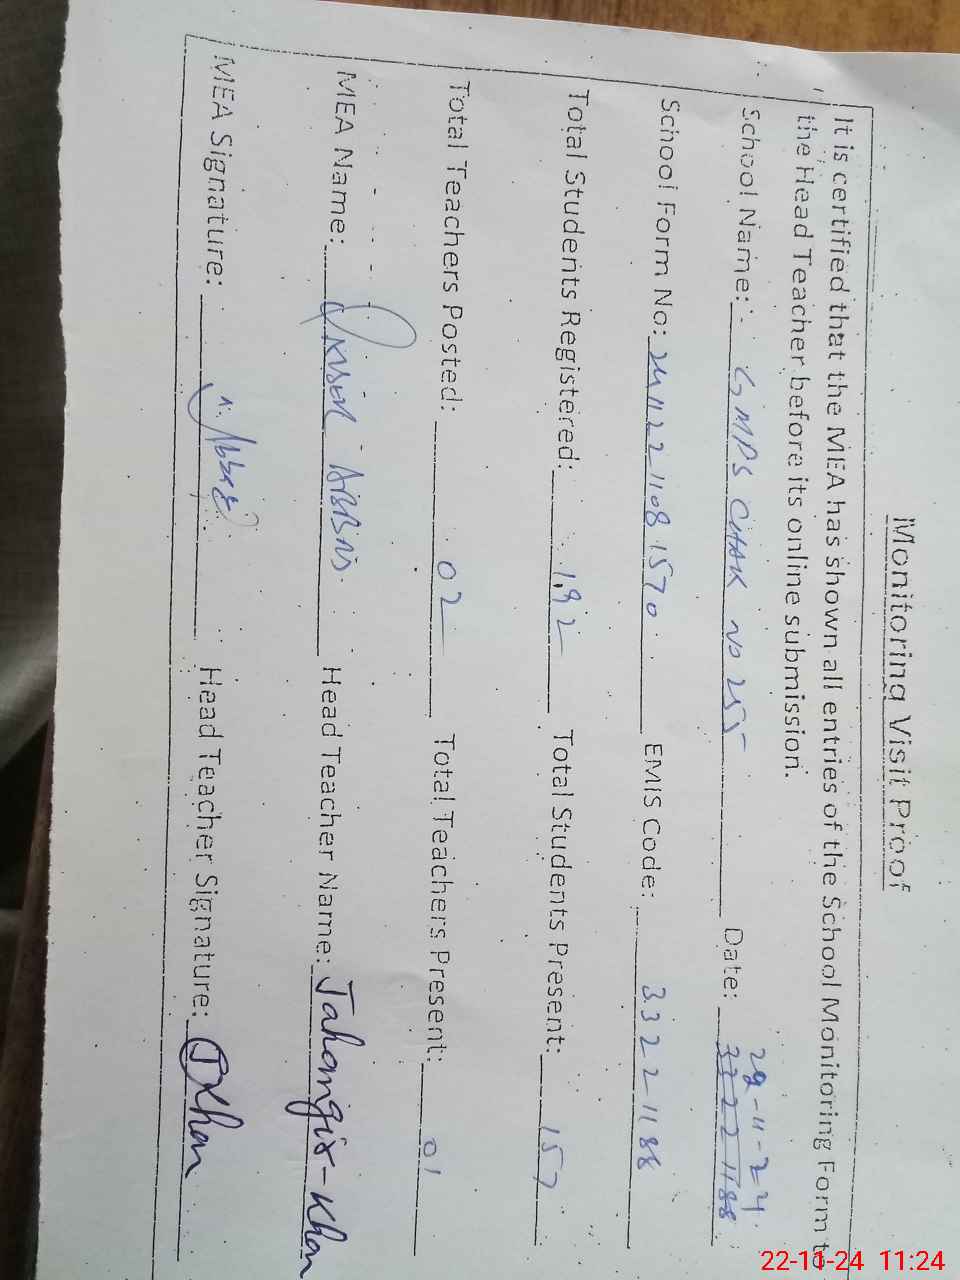 Monitoring Visit Proof
It is certified that the MEA has shown all entries of the School Monitoring Form to
the Head Teacher before its online submission.
School Name: GMPS CHAK NO 255 Date: 22-11-24
33221188
School Form No: 24112211081570 EMIS Code: 33221188
Total Students Registered: 192 Total Students Present: 157
Total Teachers Posted: 02 Total Teachers Present: 01
MEA Name: ABBAS Head Teacher Name: Jahangir-Khan
MEA Signature: Abbas Head Teacher Signature: JKhan
22-11-24 11:24